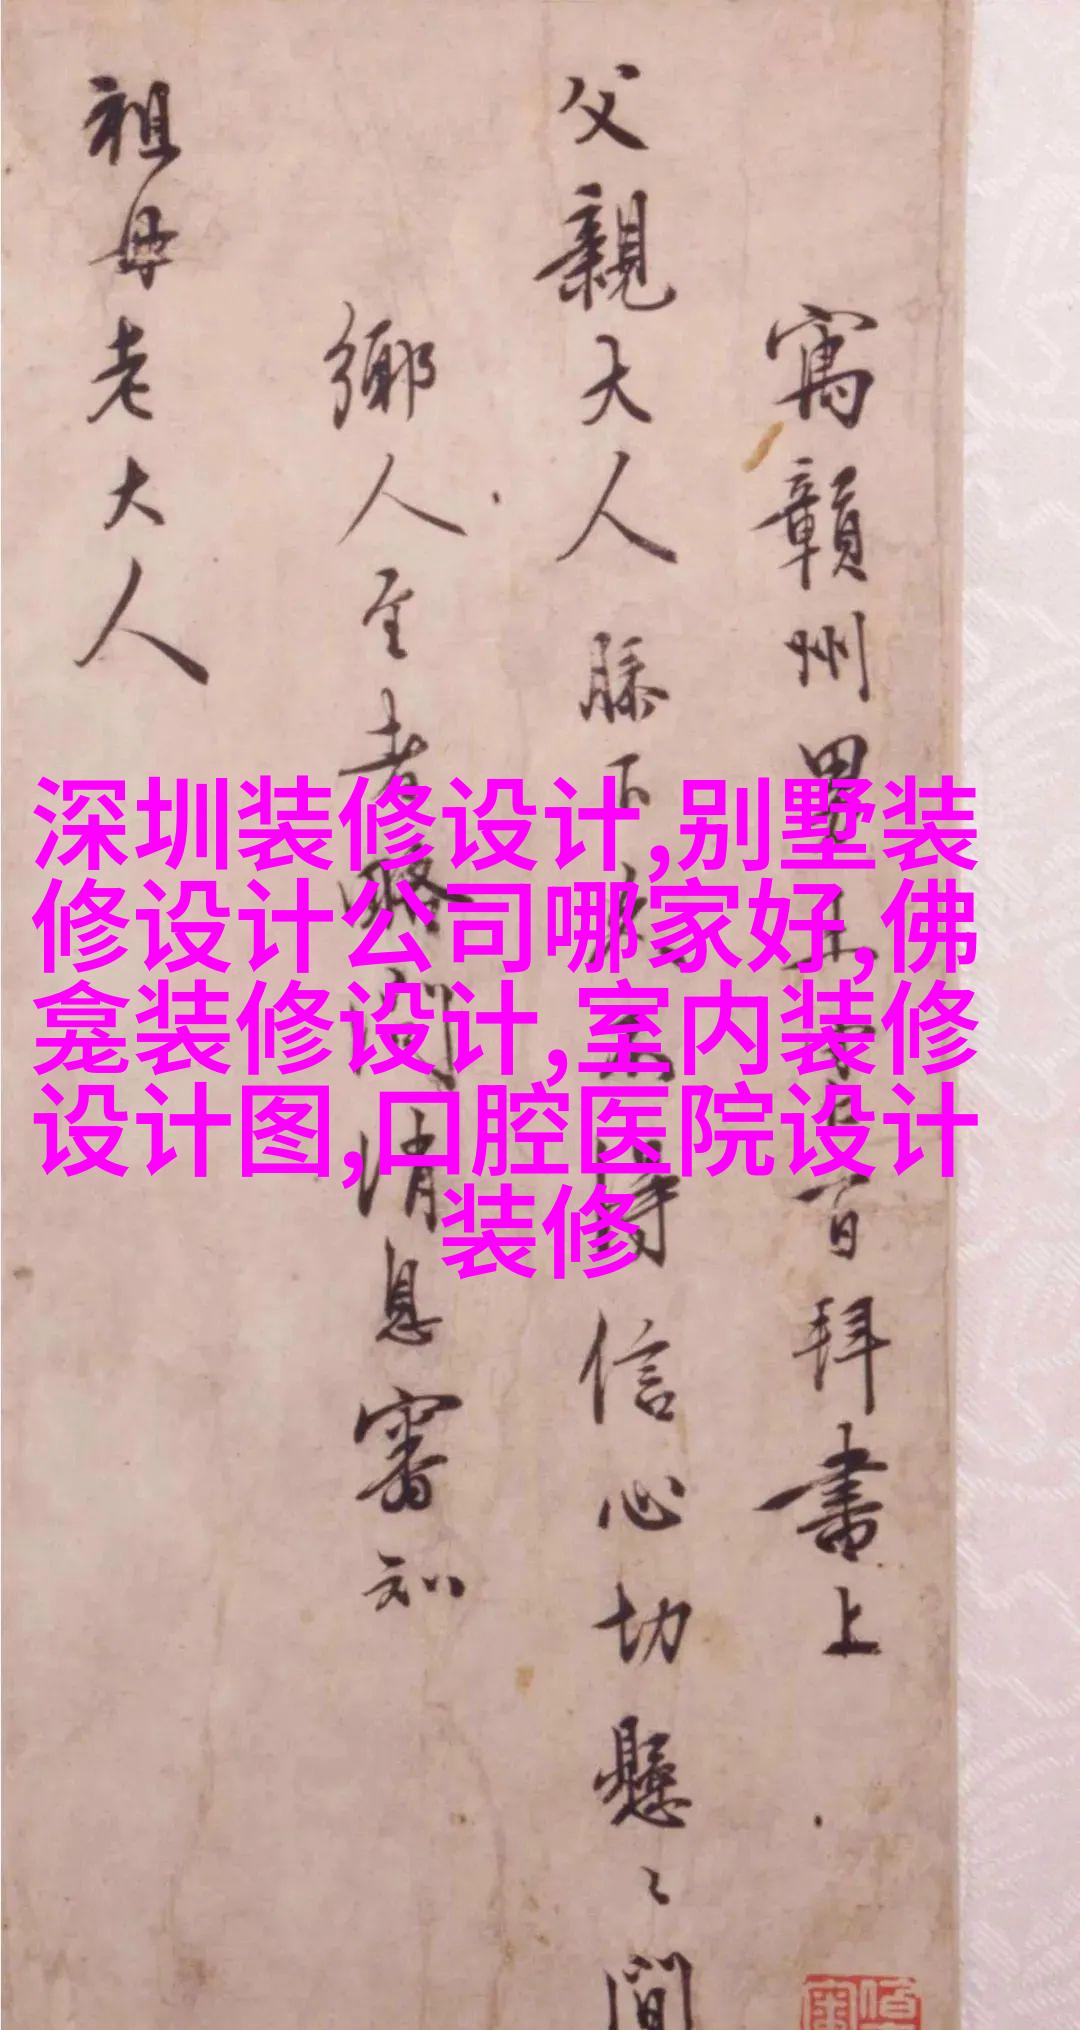 寓贛州男王守仁百拜書上
父親大人膝下久不得信心切懸〻間
鄉人至者略問消息審知
祖母老大人
深圳装修设计,别墅装
修设计公司哪家好,佛
龛装修设计,室内装修
设计图,口腔医院设计
装修